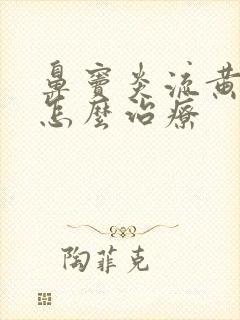 鼻窦炎流黄
怎麼治療
陶菲克